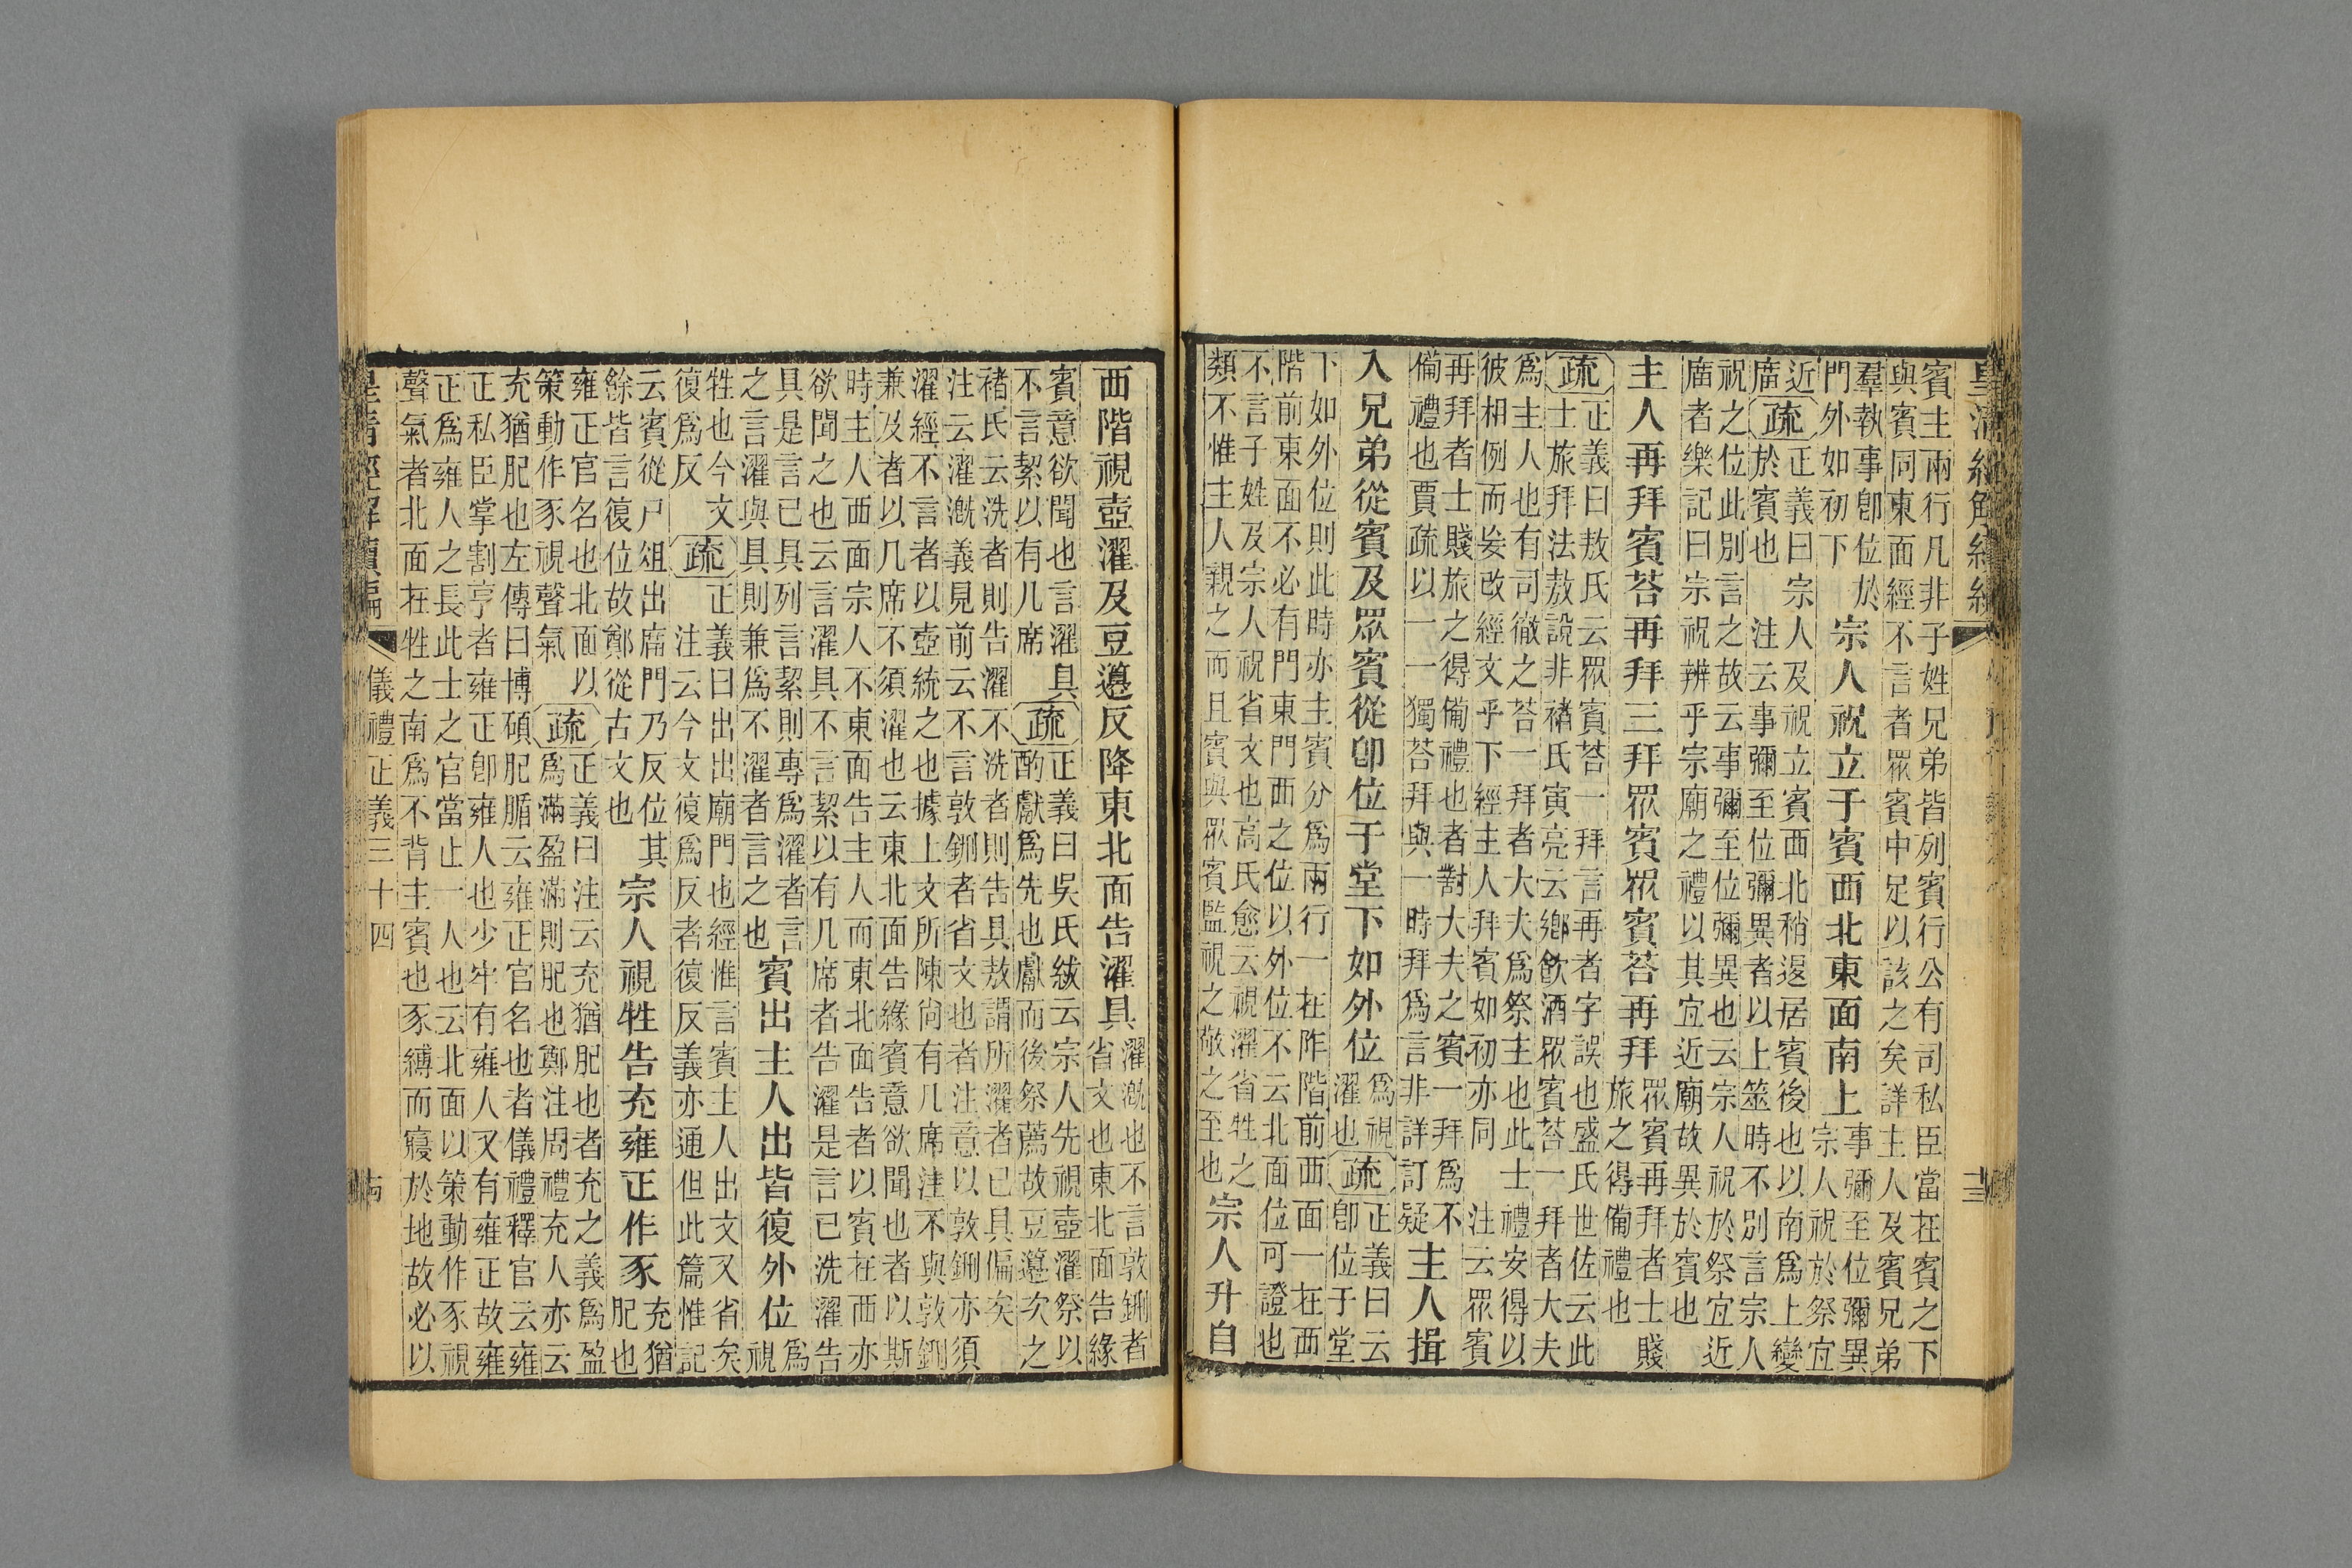 皇清經解續編
十三
賓主兩行凡非子姓兄弟皆列賓行公有司私臣當在賓之下
與賓同東面經不言者眾賓中足以該之矣詳主人及賓兄弟
羣執事卽位於
門外如初下
宗人祝立于賓西北東面南上
事彌至位彌異
宗人祝於祭宜
近
廟
疏
正義曰宗人及祝立賓西北稍退居賓後也以南爲上變
於賓也　注云事彌至位彌異者以上筮時不別言宗人
祝之位此別言之故云事彌至位彌異也云宗人祝於祭宜近
廟者樂記曰宗祝辨乎宗廟之禮以其宜近廟故異於賓也
主人再拜賓荅再拜三拜眾賓眾賓荅再拜
眾賓再拜者士賤
旅之得備禮也
疏
正義曰敖氏云眾賓荅一拜言再者字誤也盛氏世佐云此
士旅拜法敖說非褚氏寅亮云鄉飲酒眾賓荅一拜者大夫
爲主人也有司徹之荅一拜者大夫爲祭主也此士禮安得以
彼相例而妄改經文乎下經主人拜賓如初亦同　注云眾賓
再拜者士賤旅之得備禮也者對大夫之賓一拜爲不
備禮也賈疏以一一獨荅拜與一時拜爲言非詳訂疑
主人揖
入兄弟從賓及眾賓從卽位于堂下如外位
爲視
濯也
疏
正義曰云
卽位于堂
下如外位則此時亦主賓分爲兩行一在阼階前西面一在西
階前東面不必有門東門西之位以外位不云北面位可證也
不言子姓及宗人祝省文也高氏愈云視濯省牲之
類不惟主人親之而且賓與眾賓監視之敬之至也
宗人升自
西階視壺濯及豆籩反降東北面告濯具
濯漑也不言敦鉶者
省文也東北面告緣
賓意欲聞也言濯具
不言絜以有几席
疏
正義曰吳氏紱云宗人先視壺濯祭以
酌獻爲先也獻而後祭薦故豆籩次之
褚氏云洗者則告濯不洗者則告具敖謂所濯者已具偏矣
注云濯漑義見前云不言敦鉶者省文也者注意以敦鉶亦須
濯經不言者以壺統之也據上文所陳尚有几席注不與敦鉶
兼及者以几席不須濯也云東北面告緣賓意欲聞也者以斯
時主人西面宗人不東面告主人而東北面告者以賓在西亦
欲聞之也云言濯具不言絜以有几席者告濯是言已洗濯告
具是言已具列言絜則專爲濯者言
之言濯與具則兼爲不濯者言之也
賓出主人出皆復外位
爲
視
牲也今文
復爲反
疏
正義曰出出廟門也經惟言賓主人出文又省矣
注云今文復爲反者復反義亦通但此篇惟記
云賓從尸俎出廟門乃反位其
餘皆言復位故鄭從古文也
宗人視牲告充雍正作豕
充猶
肥也
雍正官名也北面以
策動作豕視聲氣
疏
正義曰注云充猶肥也者充之義爲盈
爲滿盈滿則肥也鄭注周禮充人亦云
充猶肥也左傳曰博碩肥腯云雍正官名也者儀禮釋官云雍
正私臣掌割亨者雍正卽雍人也少牢有雍人又有雍正故雍
正爲雍人之長此士之官當止一人也云北面以策動作豕視
聲氣者北面在牲之南爲不背主賓也豕縛而寢於地故必以
皇清經解續編
儀禮正義三十四